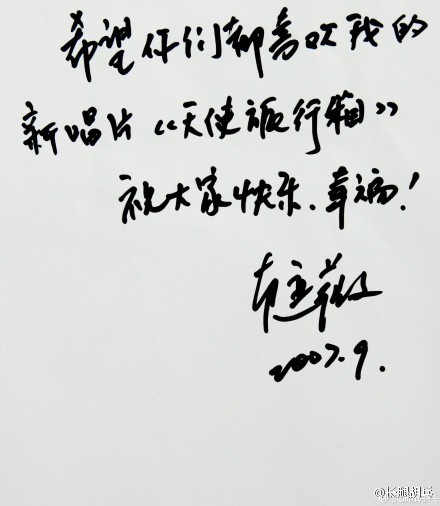 希望你们都喜欢我的
新唱片《天使旅行箱》
祝大家快乐.幸福!
2007.9.
@长腿胡兵